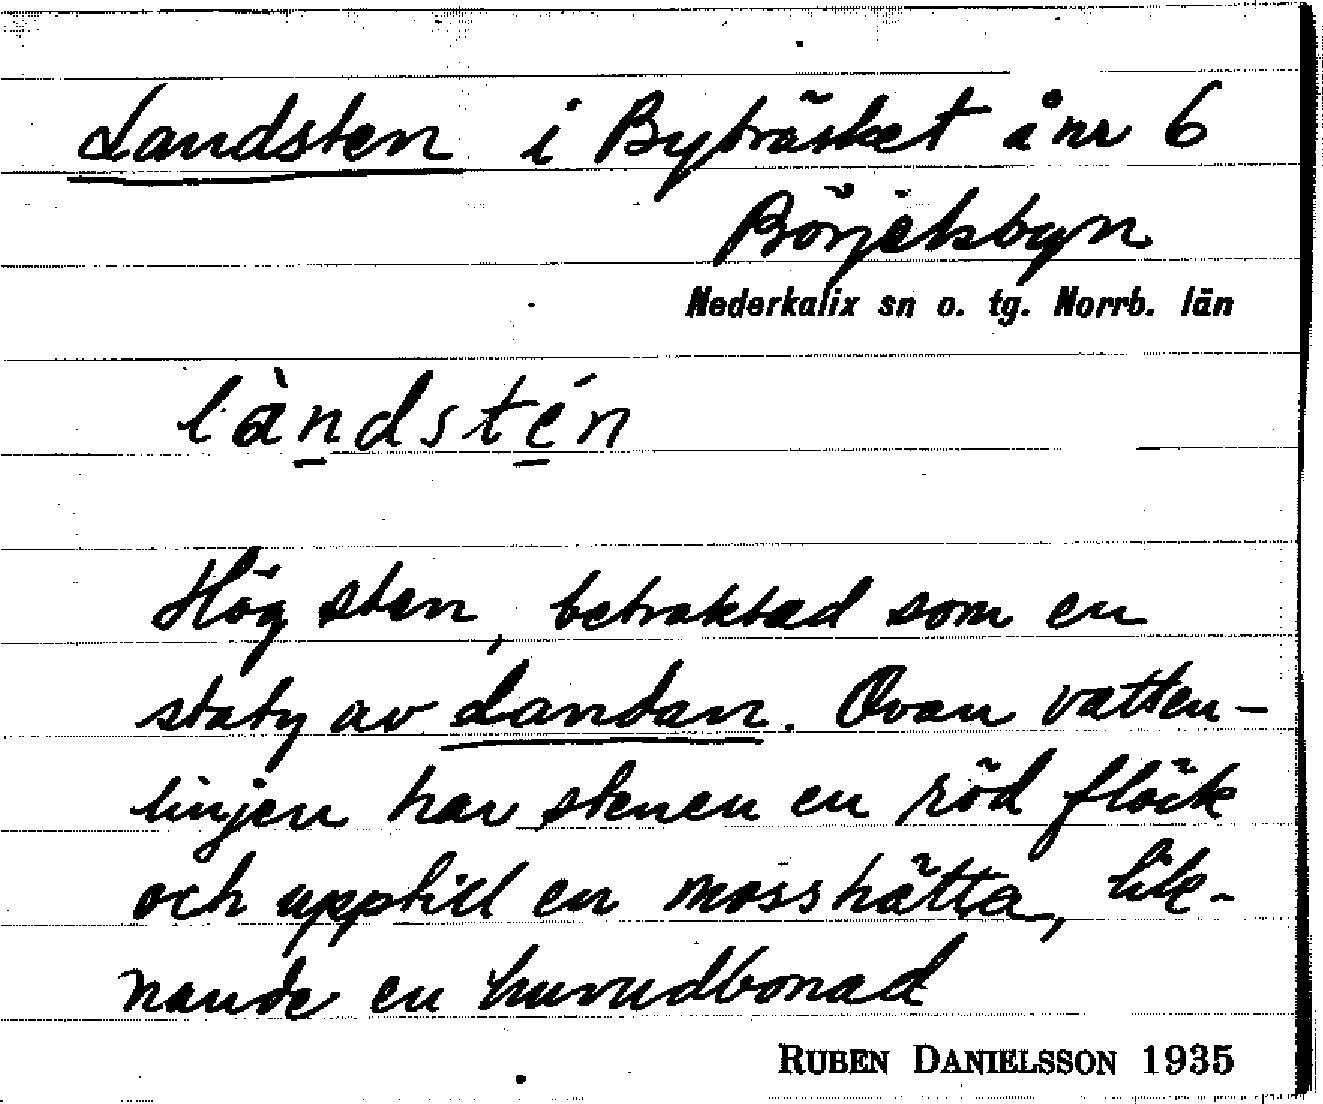 Landsten i Byträsket å nr 6
Börjelsbyn
Nederkalix sn o. tg. Norrb. län
làndstén
Hög sten, betraktad som en
staty av Landan. Ovan vatten-
linjen har stenen en röd fläck
och upptill en mosshätta, lik-
nande en huvudbonad
RUBEN DANIELSSON 1935